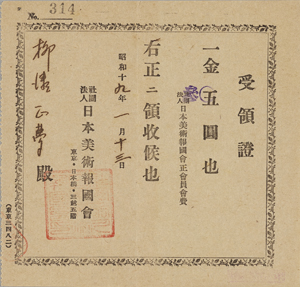 No. 314
受領證
一金五圓也
社團法人日本美術報國會正會員會費
右正ニ領收候也
昭和十九年一月十三日
社團法人日本美術報國會
東京・日本橋・三越五階
柳瀬正夢殿
(東京三四八二)